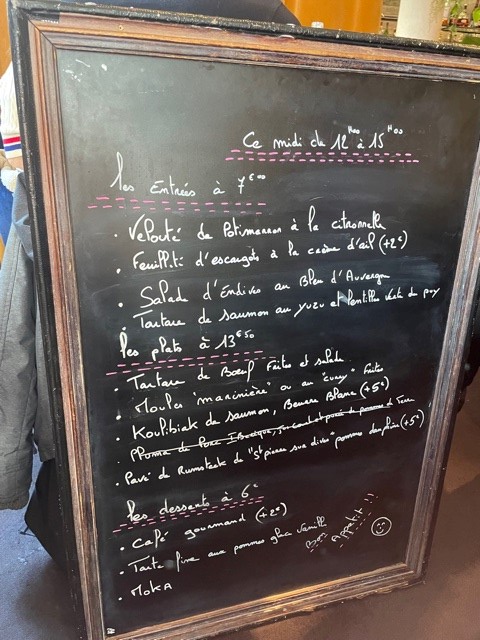 Ce midi de 12H00 à 15H00
les Entrées à 7€00
. Velouté de Potimarron à la citronnelle
. Feuilleté d'escargots à la crème d'ail (+2€)
. Salade d'Endives au Bleu d'Auvergne
. Tartare de saumon au yuzu et lentilles verte du puy
les plats à 13€50
. Tartare de Bœuf Frites et salade
. Moules "marinière" ou au "curry" Frites
. Koulibiak de saumon, Beurre Blanc (+5€)
. Pluma de Porc Ibérique, jus court et purée de pomme de Terre
. Pavé de Rumsteack de "St pierre sur dives" pommes (+5€)
les desserts à 6€
. Café gourmand (+2€)
. Tarte fine aux pommes glace vanille
. Moka
Bon Appétit !!